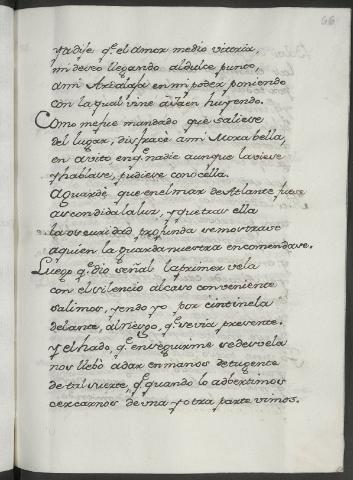 66
ya dije q.e el amor me dio vitoria,
mi deseo llegando al dulce punto,
a mi Arlaja en mi poder poniendo
con la qual vine a Jaen huyendo.
Como me fue mandado que saliese
del lugar, disfracè a mi Mora bella,
en avito en q.e nadie aunque la viese
y hablase, pudiese conocella.
Aguardè que en el mar de Atlante fuese
ascondida la luz, y que tras ella
la oscuridad profunda se mostrase
a quien la guarda nuestra encomendase.
Luego q.e dio señal la primer vela
con el silencio al caso conveniente
salimos, yendo yo por cintinela
delante, al riesgo, q.e se via presente.
y el hado, q.e en seguirme se desvela
nos llebò a dar en manos de tu gente
de tal suerte, q.e quando lo adbertimos
cercarnos de una y otra parte vimos.